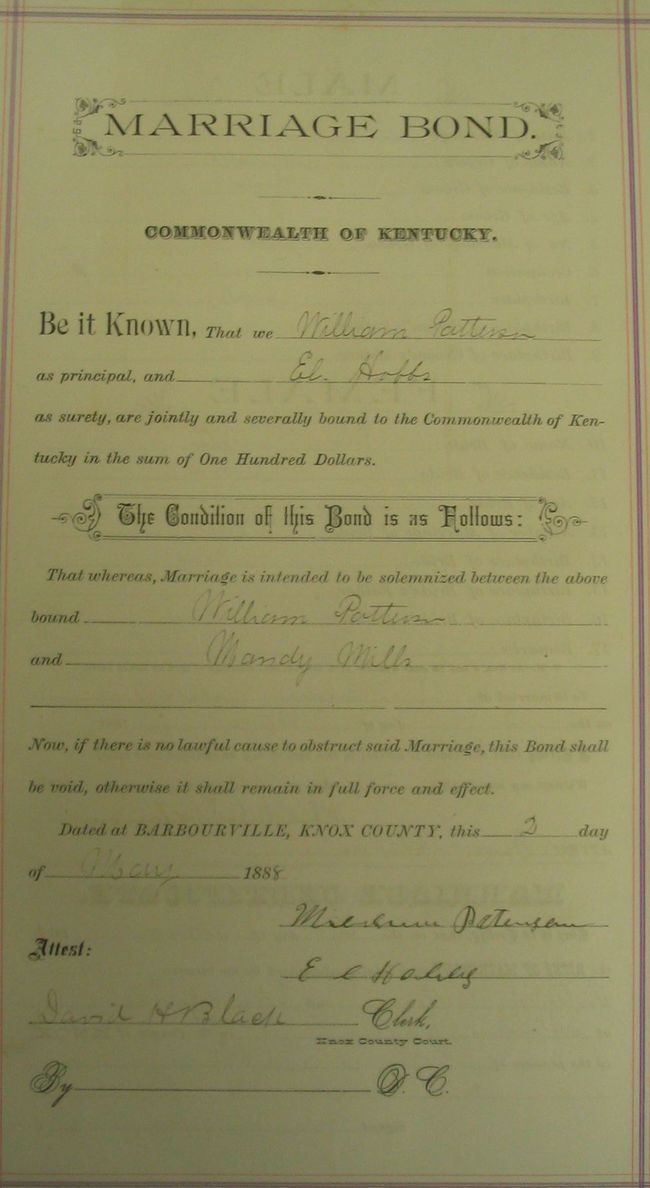 MARRIAGE BOND.
COMMONWEALTH OF KENTUCKY.
Be it Known, That we William Patterson
as principal, and El. Hobbs
as surety, are jointly and severally bound to the Commonwealth of Ken-
tucky in the sum of One Hundred Dollars.
The Condition of this Bond is as Follows:
That whereas, Marriage is intended to be solemnized between the above
bound William Patterson
and Mandy Mills
Now, if there is no lawful cause to obstruct said Marriage, this Bond shall
be void, otherwise it shall remain in full force and effect.
Dated at BARBOURVILLE, KNOX COUNTY, this 2 day
of May 1888
Patenson
Attest:
E l Hobbs
David H Black Clerk,
Knox County Court.
By D. C.